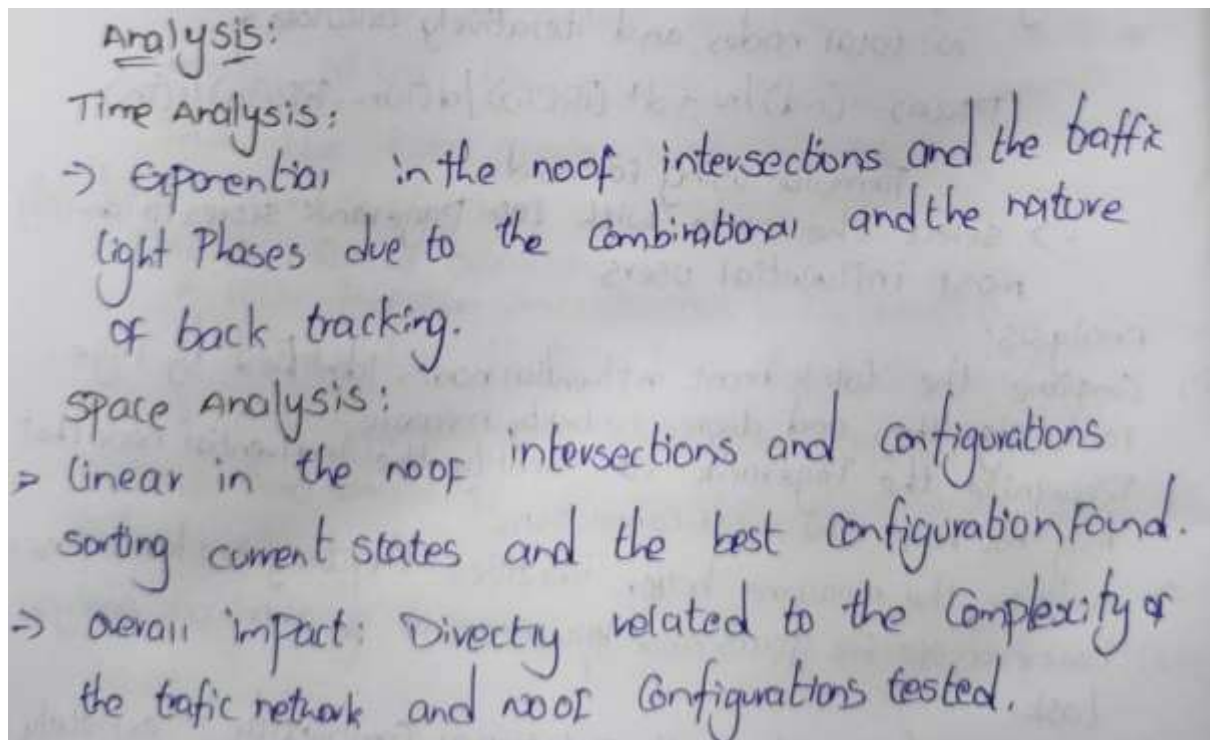 Analysis:
Time Analysis:
→ Exponential in the noof intersections and the traffic
light Phases due to the Combinational and the nature
of back tracking.
Space Analysis:
→ linear in the noof intersections and configurations
sorting current states and the best configuration Found.
→ overall impact: Directly related to the Complexity of
the trafic network and noof Configurations tested.